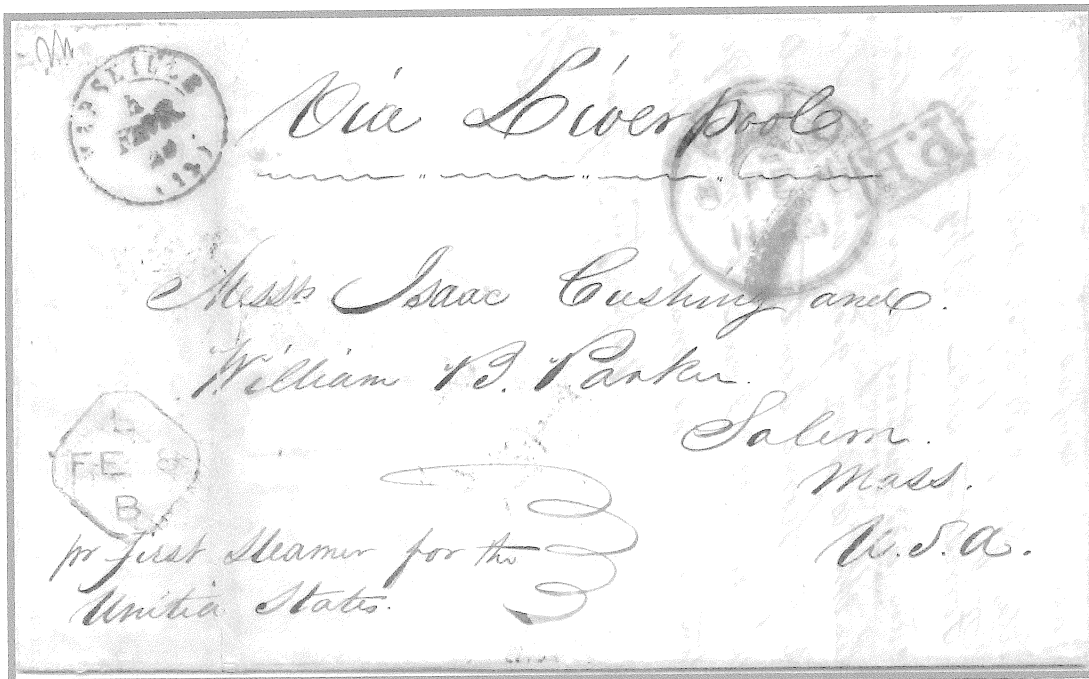 MARSEILLE
Via Liverpool
Mess.rs Isaac Cushing and.
William B. Parker.
Salem.
Mass.
U.S.A.
L
F.E &
B
pr first Steamer for the
United States.